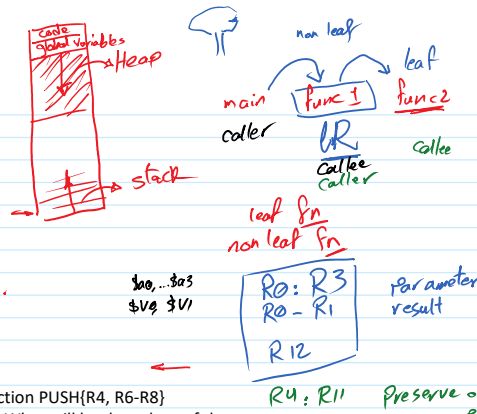 code
global variables
Heap
stack
non leaf
leaf
main
func 1
func2
caller
LR
callee
callee
caller
leaf fn
non leaf fn
$a0,...$a3
$V0, $V1
R0: R3
Parameter
R0 - R1
result
R12
ction PUSH{R4, R6-R8}
R4: R11
Preserve